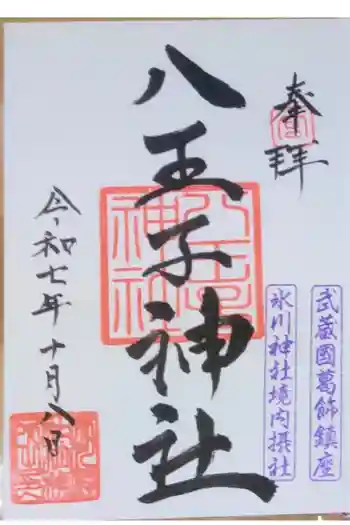 奉拝
武蔵國葛飾鎮座
氷川神社境内摂社
八王子神社
令和七年十月八日